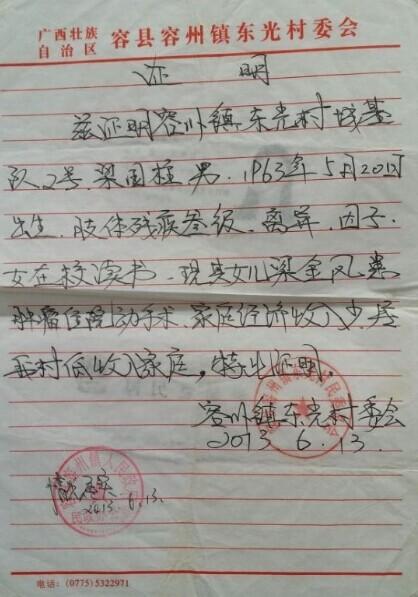 广西壮族
自治区 容县容州镇东光村委会
证 明
兹证明容州镇东光村城基
队2号.梁国柱.男.1963年5月20日
出生.肢体残疾叁级.离异.因子
女在校读书.现其女儿梁金凤患
肿瘤住院动手术.家庭经济收入少.居
我村低收入家庭,特出证明.
容州镇东光村委会
2013.6.13.
情况属实
2013.6.13.
电话:(0775)5322971